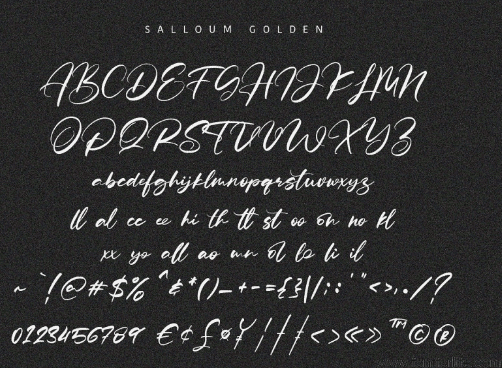 SALLOUM GOLDEN
ABCDEFGHIJKLMN
OPQRSTUVWXYZ
abcdefghijklmnopqrstuvwxyz
ll al cc ee hi th tt st oo on no kl
xx yo all ao wn ol lo li il
~ ` ! @ # $ % ^ & * ( ) _ + - = { } | / ; : ' " < > , . / ?
0123456789 € ¢ £ ¤ ¥ ¦ < > « » ™ © ®